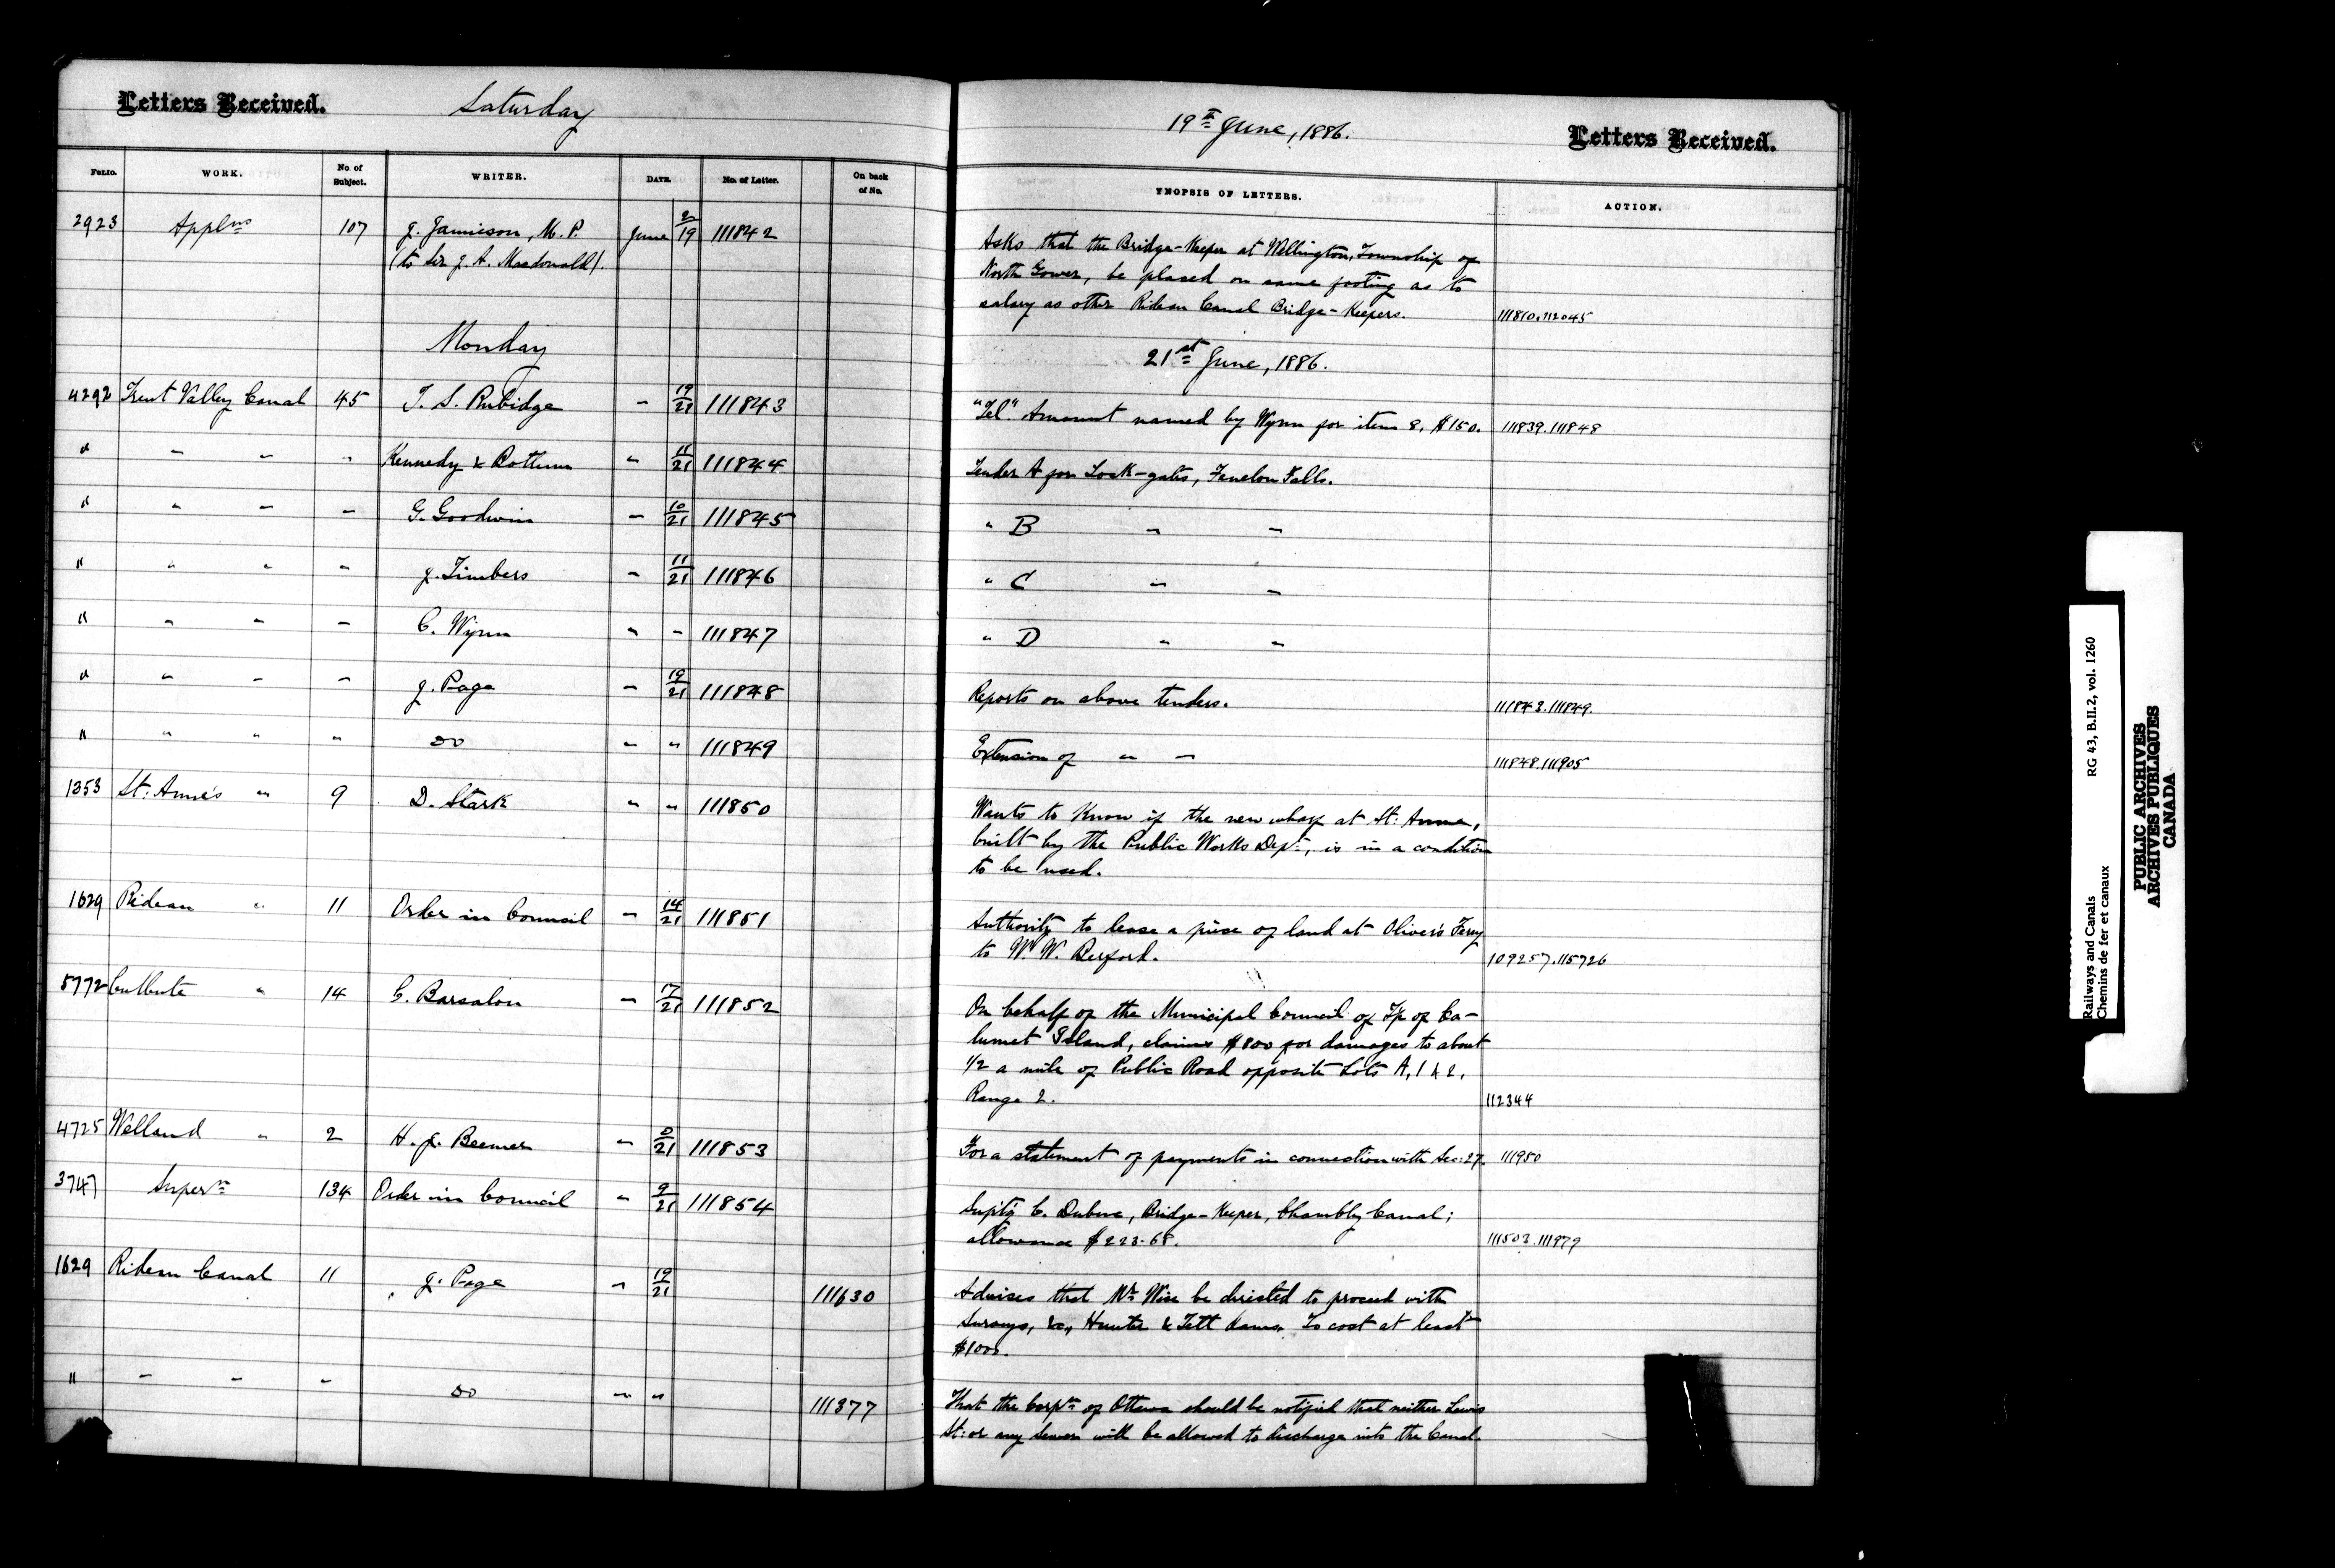 Letters Received.
Saturday
19th June, 1886.
Letters Received.
FOLIO. WORK. No. of Subject. WRITER. DATE. No. of Letter. On back of No. SYNOPSIS OF LETTERS. ACTION.
2923 Applns 107 J. Jamieson, M.P. June 2/19 111842 Asks that the Bridge-Keeper at Wellington, Township of
(to Sir J. A. Macdonald). North Gower, be placed on same footing as to
salary as other Rideau Canal Bridge-Keepers. 111810.112045
Monday
21st June, 1886.
4292 Trent Valley Canal 45 T. S. Rubidge " 19/21 111843 "Tel". Amount named by Wynn for item 8, $150. 111839.111848
" " " " Kennedy & " 11/21 111844 Tender A for Lock-gates, Fenelon Falls.
" " " " G. Goodwin " 10/21 111845 " B " "
" " " " J. Timbers " 11/21 111846 " C " "
" " " " C. Wynn " " 111847 " D " "
" " " " J. Page " 19/21 111848 Reports on above tenders. 111843.111849.
" " " " Do " " 111849 Extension of " " 111848.111905
1353 St: Anne's " 9 D. Stark " " 111850 Wants to know if the new wharf at St: Anne,
built by the Public Works Dept:, is in a condition
to be used.
1629 Rideau " 11 Order in Council " 14/21 111851 Authority to lease a piece of land at Oliver's Ferry
to W. W. Berford. 109257.115726
5772 Culbute " 14 C. Barsalou " 17/21 111852 On behalf of the Municipal Council of Tp of Ca-
lumet Island, claims $800 for damages to about
1/2 a mile of Public Road opposite Lots A, 1 & 2,
Range 2. 112344
4725 Welland " 2 H. J. Beemer " 0/21 111853 For a statement of payments in connection with Sec: 27. 111980
3747 Superns 134 Order in Council " 9/21 111854 Suptg C. Dubuc, Bridge-Keeper, Chambly Canal;
allowance $223.68. 111503.111979
1629 Rideau Canal 11 J. Page " 19/21 111630 Advises that Mr Wise be directed to proceed with
Surveys, &c, Hunter & Tett dams. To cost at least
$1000.
" " " " Do " " 111377 That the Corptn of Ottawa should be notified that neither Lewis
St: or any sewer will be allowed to discharge into the Canal.
Railways and Canals RG 43, B.II.2, vol. 1260
Chemins de fer et canaux
PUBLIC ARCHIVES
ARCHIVES PUBLIQUES
CANADA